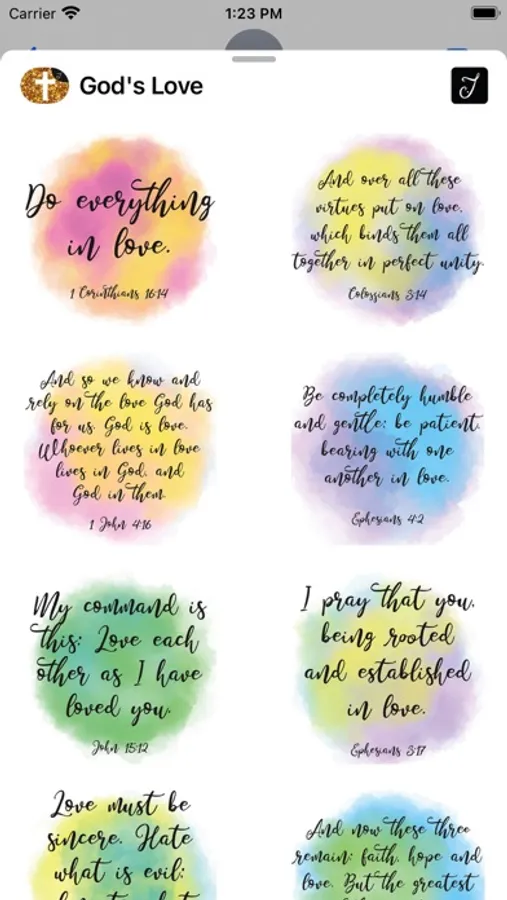 Carrier 1:23 PM
God's Love
Do everything
in love.
1 Corinthians 16:14
And over all these
virtues put on love,
which binds them all
together in perfect unity.
Colossians 3:14
And so we know and
rely on the love God has
for us. God is love.
Whoever lives in love
lives in God, and
God in them.
1 John 4:16
Be completely humble
and gentle; be patient,
bearing with one
another in love.
Ephesians 4:2
My command is
this: Love each
other as I have
loved you.
John 15:12
I pray that you,
being rooted
and established
in love.
Ephesians 3:17
Love must be
sincere. Hate
what is evil;
And now these three
remain: faith, hope and
love. But the greatest